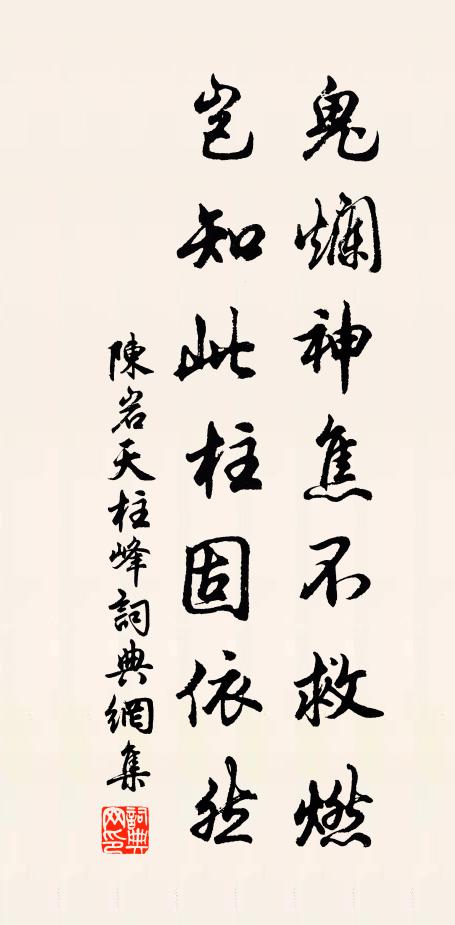 鬼爛神焦不救燃
豈知此柱固依然
陳岩天柱峰詞典網集
詞典網印